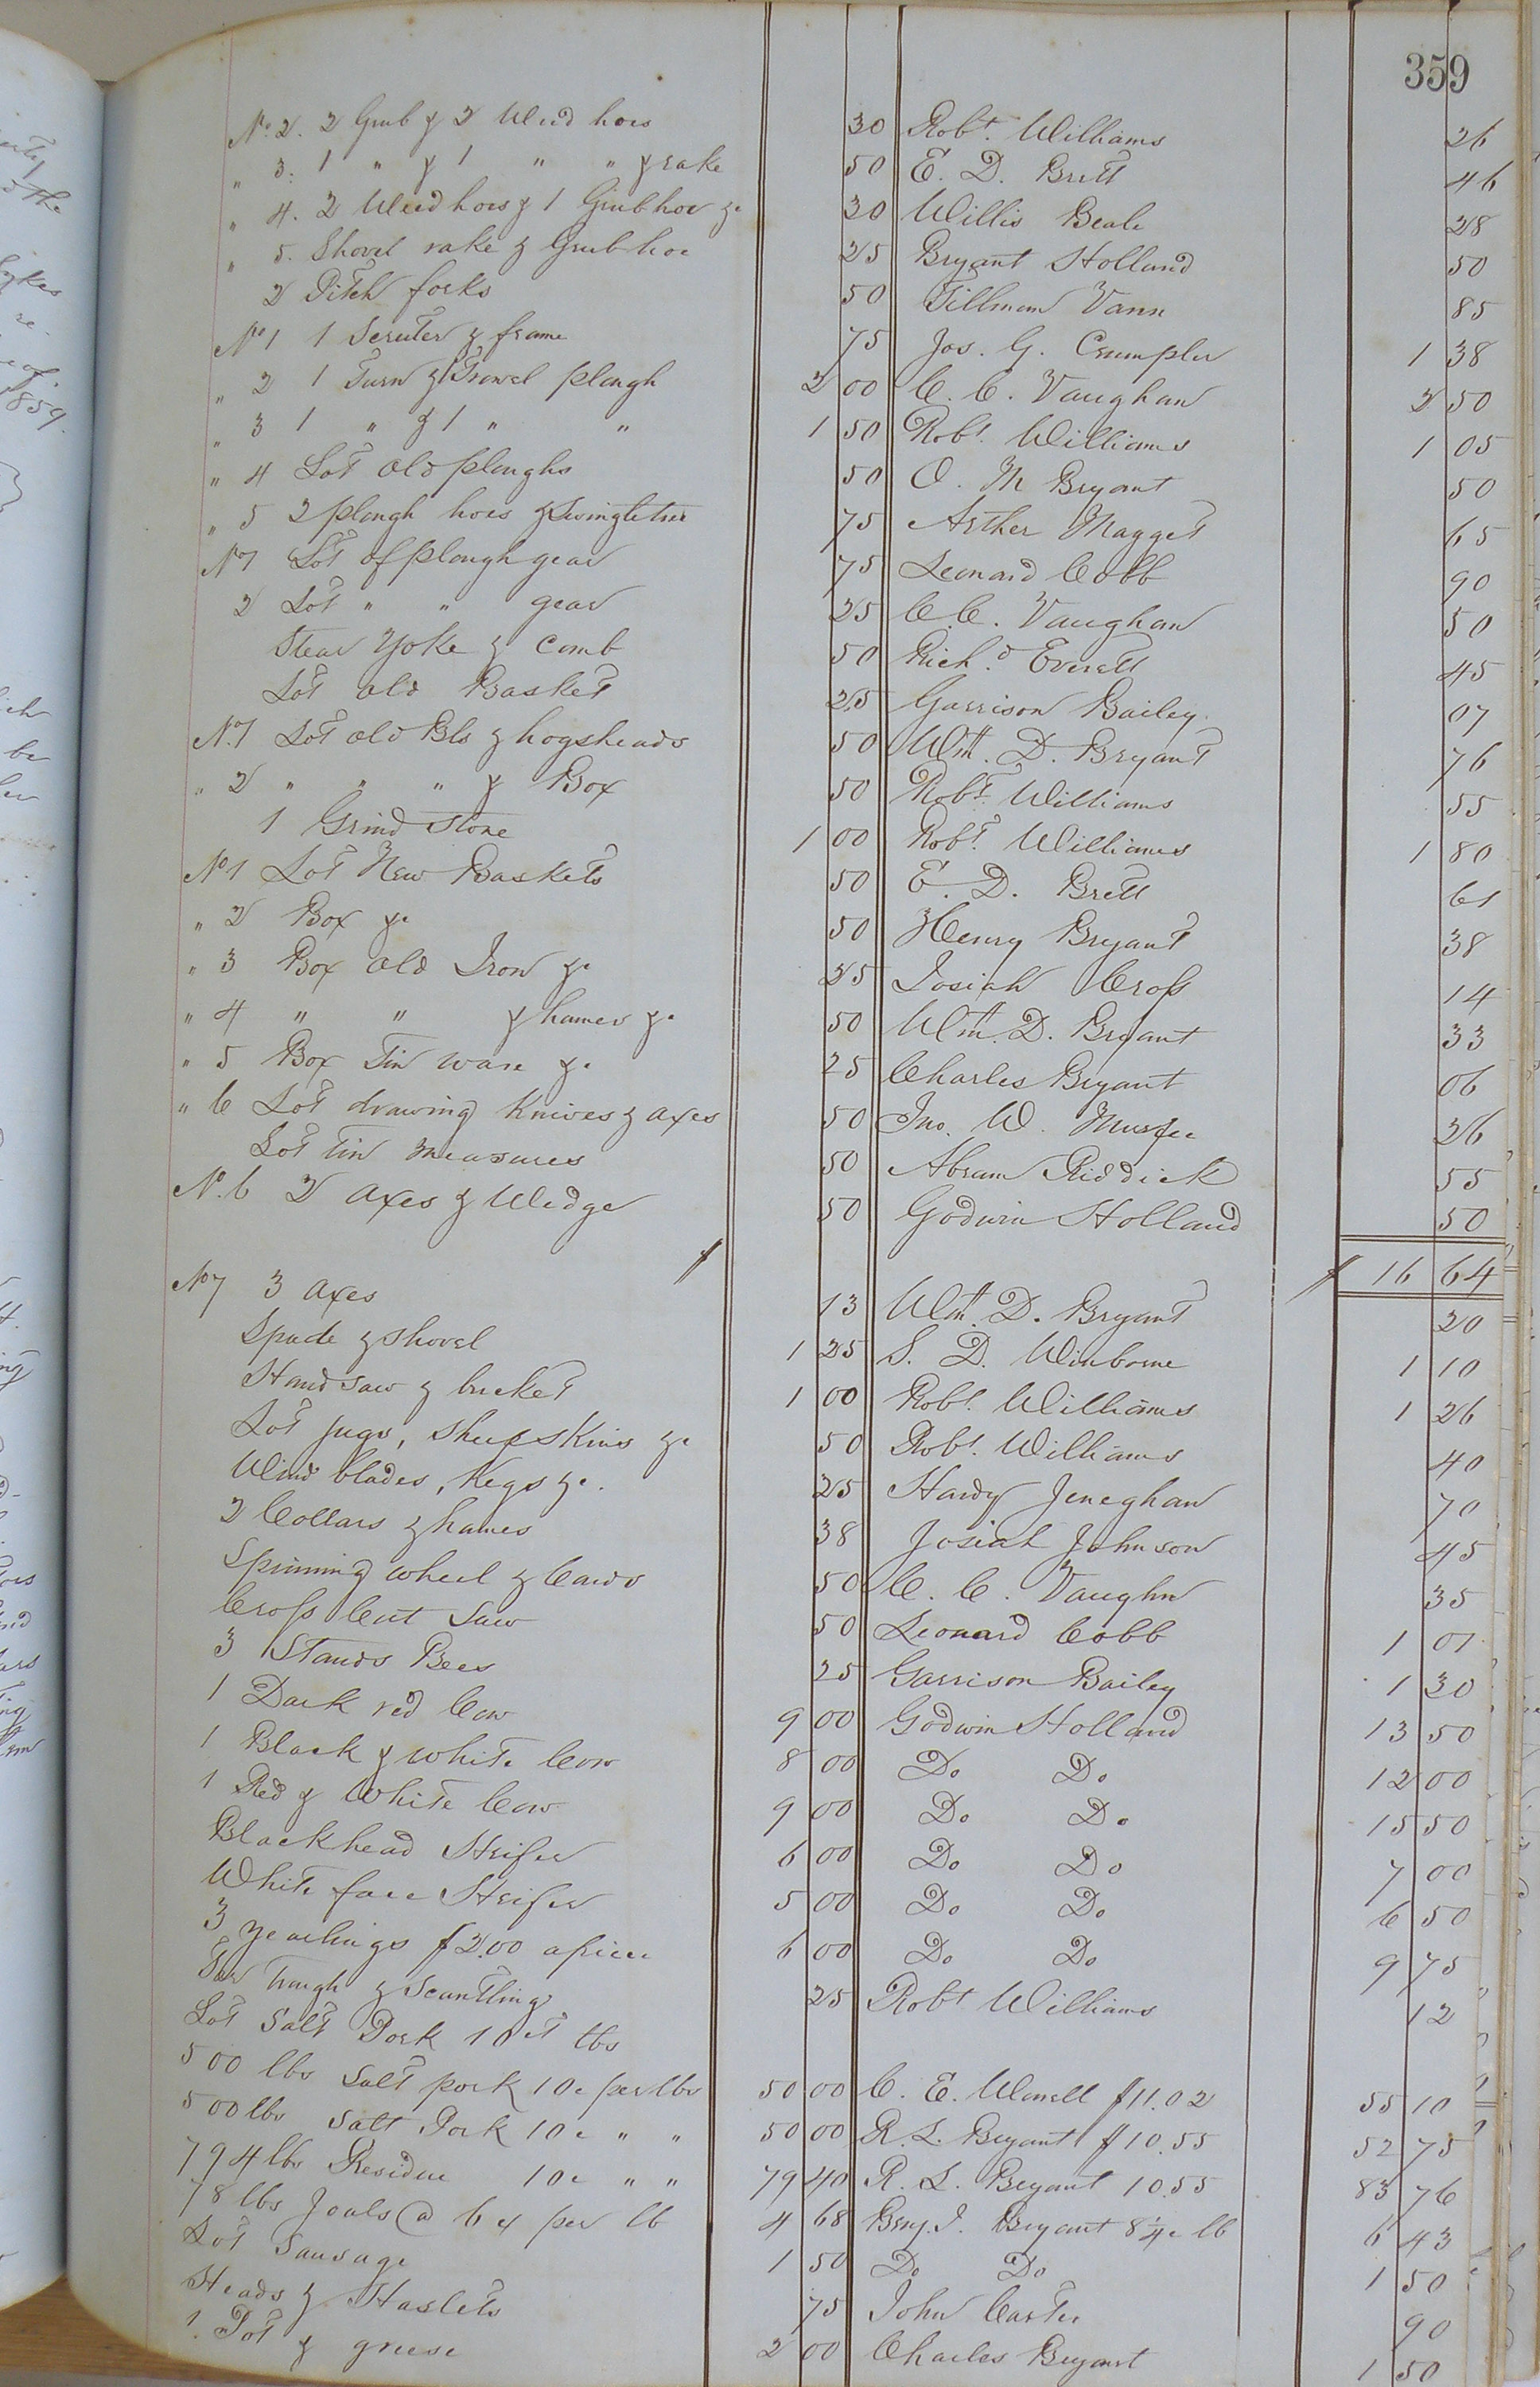 359
No. 2. 2 Grub & 2 Weed hoes 30 Robt. Williams 26
" 3. 1 " & 1 " " & rake 50 E. D. Brett 46
" 4. 2 Weed hoes & 1 Grub hoe &c 30 Willis Beale 28
" 5. Shovel rake & Grub hoe 25 Bryant Holland 50
2 Pitch forks 50 Tillman Vann 85
No 1 1 Scruter & frame 75 Jos. G. Crumpler 1 38
" 2 1 Turn & Trowel plough 2 00 C. C. Vaughan 2 50
" 3 1 " & 1 " " 1 50 Robt. Williams 1 05
" 4 Lot old ploughs 50 O. M Bryant 50
" 5 2 plough hoes & Swingletree 75 Arther Magget 65
No 1 Lot of plough gear 75 Leonard Cobb 90
2 Lot " " gear 25 C. C. Vaughan 50
Stear Yoke & Comb 50 Richd. Everett 45
Lot old Basket 25 Garrison Bailey. 07
No. 1 Lot old Bls & hogsheads 50 Wm. D. Bryant 76
" 2 " " " & Box 50 Robt. Williams 55
1 Grind stone 1 00 Robt. Williams 1 80
No 1 Lot New Baskets 50 E. D. Brett 61
" 2 Box &c 50 Henry Bryant 38
" 3 Box old Iron &c 25 Josiah Cross 14
" 4 " " & hamer &c 50 Wm. D. Bryant 33
" 5 Box Tin ware &c 25 Charles Bryant 06
" 6 Lot drawing Knives & axes 50 Jno. W. Murfee 26
Lot tin measures 50 Abram Riddick 55
No. 6 2 axes & Wedge 50 Godwin Holland 50
$ $ 16 64
No 7 3 axes 13 Wm. D. Bryant 20
Spade & shovel 1 25 S. D. Winborne 1 10
Hand saw & bucket 1 00 Robt. Williams 1 26
Lot jugs, sheep skins &c 50 Robt. Williams 40
Wind blades, Kegs &c. 25 Hardy Jeneghan 70
2 Collars & hames 38 Josiah Johnson 45
Spinning wheel & Cards 50 C. C. Vaughn 35
Cross Cut Saw 50 Leonard Cobb 1 01
3 Stands Bees 25 Garrison Bailey 1 30
1 Dark red Cow 9 00 Godwin Holland 13 50
1 Black & white Cow 8 00 Do Do 12 00
1 Red & White Cow 9 00 Do Do 15 50
Blackhead Heifer 6 00 Do Do 7 00
White face Heifer 5 00 Do Do 6 50
3 yearlings $2.00 apiece 6 00 Do Do 9 75
Trough & Scantling 25 Robt Williams 12
Lot Salt Pork 10 ct lbs
500 lbs Salt pork 10c per lbs 50 00 C. E. Worrell $11.02 55 10
500 lbs Salt Pork 10c " " 50 00 R. L. Bryant $10.55 52 75
794 lbs Residue 10c " " 79 40 R. L. Bryant 10.55 83 76
78 lbs Joals @ 6 c per lb 4 68 Benj. J. Bryant 8¼c lb 6 43
Lot Sausage 1 50 Do Do 1 50
Heads & Haslets 75 John Carter 90
1. Pot & grease 2 00 Charles Bryant 1 50